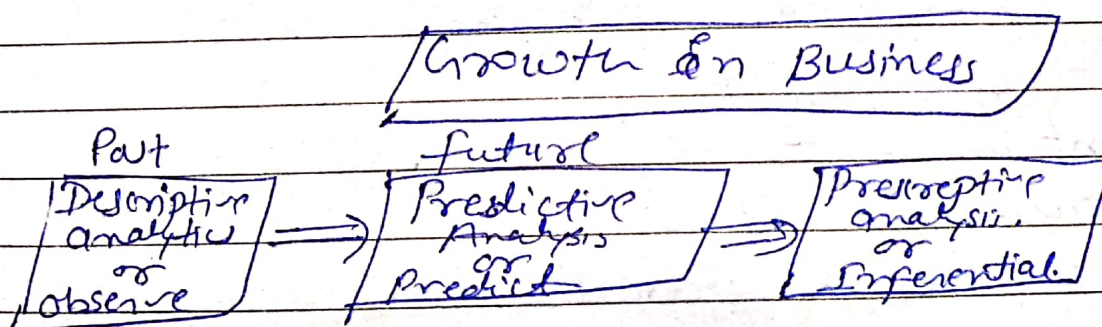 Growth in Business
Past
future
Descriptive
analytics
or
observe
Predictive
Analysis
or
Predict
Prescreptive
analysis.
or
Inferential.